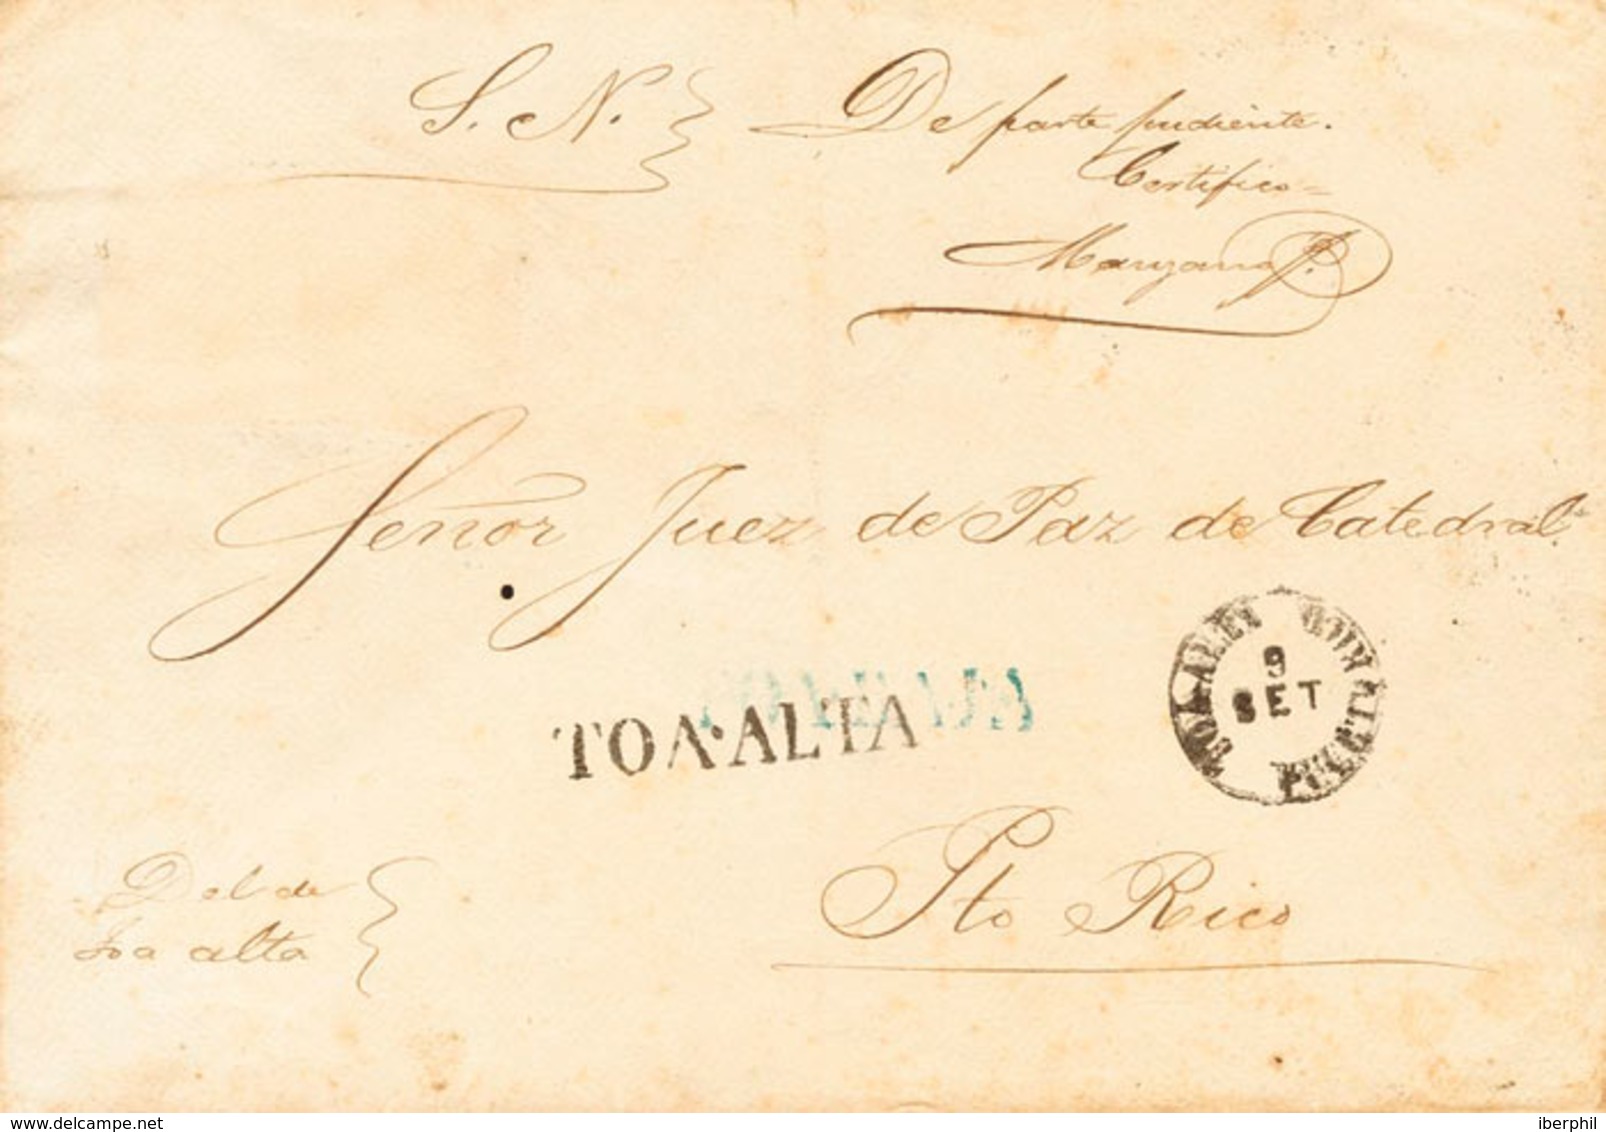 S. N. De parte pudiente.
Certifico =
Manzano
Señor Juez de Paz de Catedral.
TOA·ALTA
TOA BAJA
9
SET
PUERTO RICO
Del de
toa alta
Pto Rico
delcampe.net
iberphil